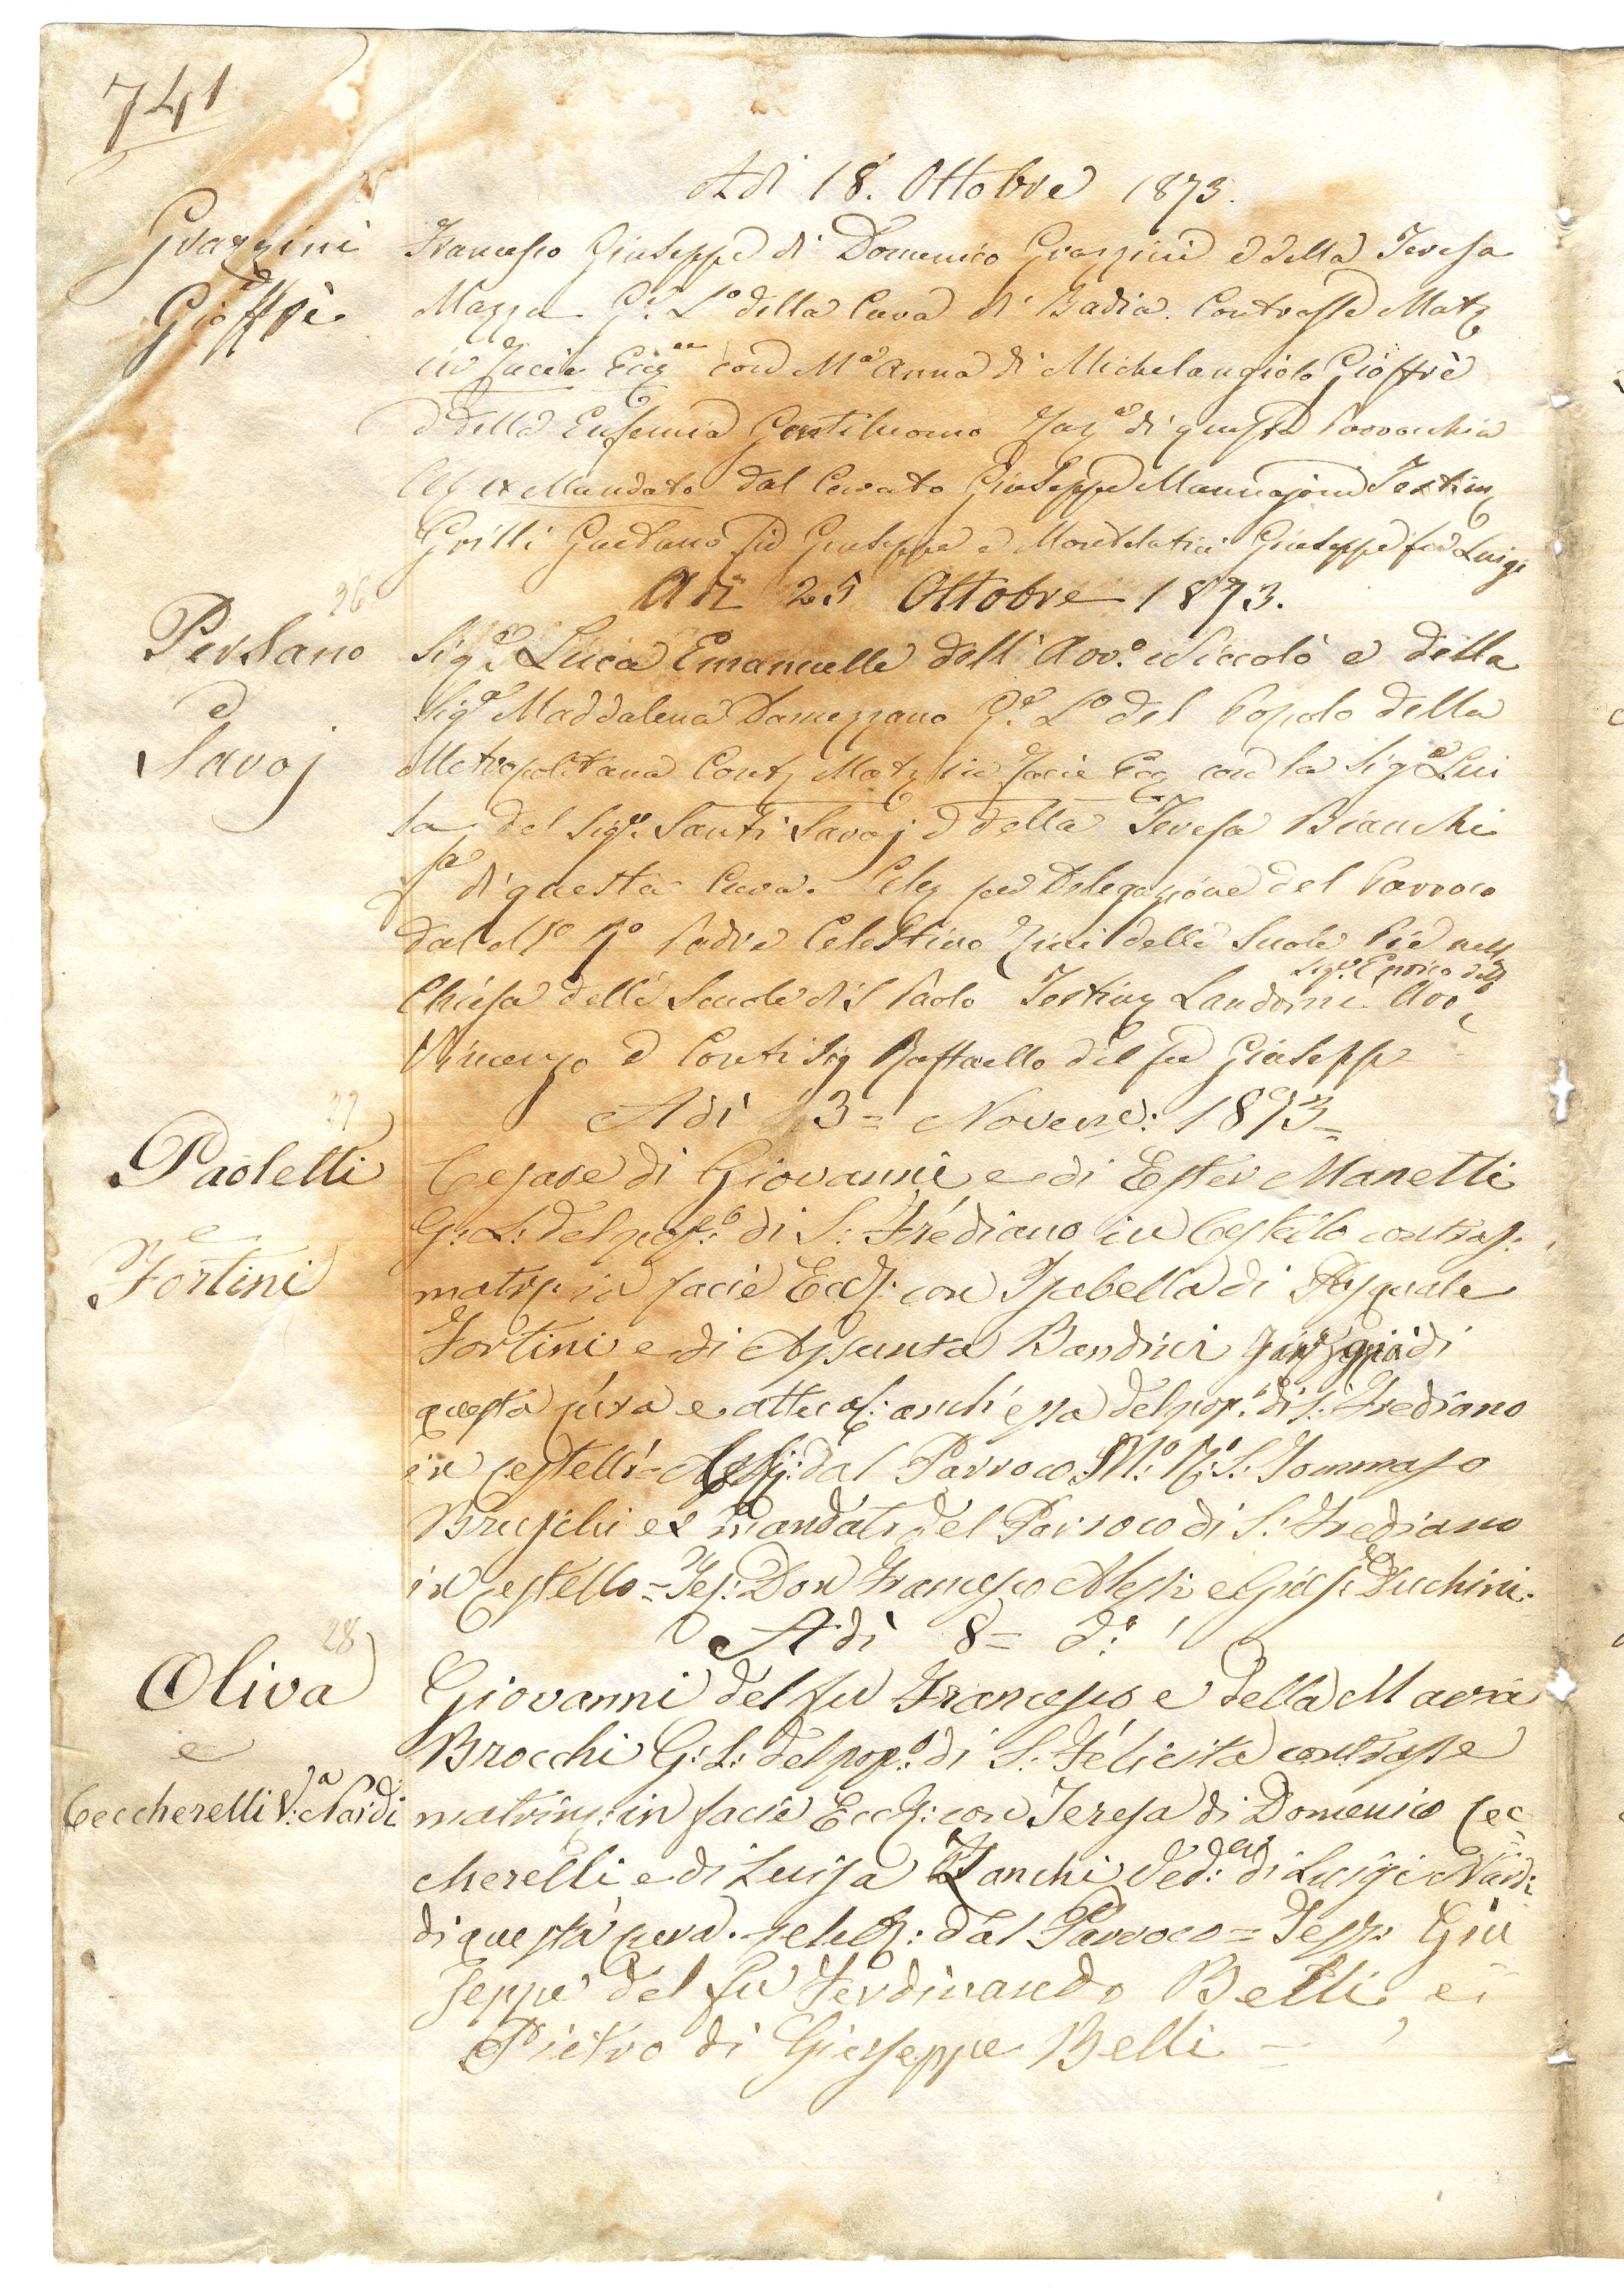 741
Adi 18. Ottobre 1873.
Grazzini
e
Gioffrè
Francesco Giuseppe di Domenico Grazzini e della Teresa
Mazza Ge Lo della Cura di Badia. Contrasse Matr
in facie Eccq con Ma Anna di Michelangiolo Gioffrè
e della Eufemia Gentiluomo di questa Parrocchia
ex Mandato dal Curato Giuseppe Mannajoni Testim
Grilli Gaetano di Giuseppe e Montelatici Giuseppe fu Luigi
26
Adi 25 Ottobre 1873.
Persano
e
Savoj
Sigre Luca Emanuelle dell' Avvo. Niccolò e della
Siga Maddalena Damezzano Ge Lo del Popolo della
Metropolitana Contr Matr in facie Ecc con la Siga Lui
sa del Sigr. Santi Savoj e della Teresa Bianchi
di questa Cura. Celeb per Delegazione del Parroco
dal Mo Ro Padre Celestino Zini delle Scuole Pie nella
Chiesa delle Scuole di S Paolo Testim Landrini Sigr. Enrico dell Avvo
Vincenzo e Conti Sig Raffaello del fu Giuseppe
27
Adi 3= Novene: 1873=
Paoletti
e
Fortini
Cesare di Giovanni e di Ester Manetti
G: L: del popo: di S: Frediano in Cestello contras:
matri: in facie Eccl: con Isabella di Pasquale
Fortini e di Assunta Bandini già di
questa cura e attual: anch'essa del pop: di S: Frediano
in Cestello= dal Parroco M: R: S: Tommaso
Bruschi ex mandato del Parroco di S: Frediano
in Cestello= Tes: Don Francesco Alessi e Gius: Duchini.
28
Adi 8= do:
Oliva
e
Ceccherelli Va: Nardi
Giovanni del fu Francesco e della Maria
Brocchi G: L: del popo: di S. Felicita contrasse
matrim: in facie Eccl: con Teresa di Domenico Cec=
cherelli e di Luisa Zanchi Ved:a di Luigi Nardi
di questa cura. celeb: dal Parroco= Test: Giu
seppe del fu Ferdinando Belli e
Pietro di Giuseppe Belli=